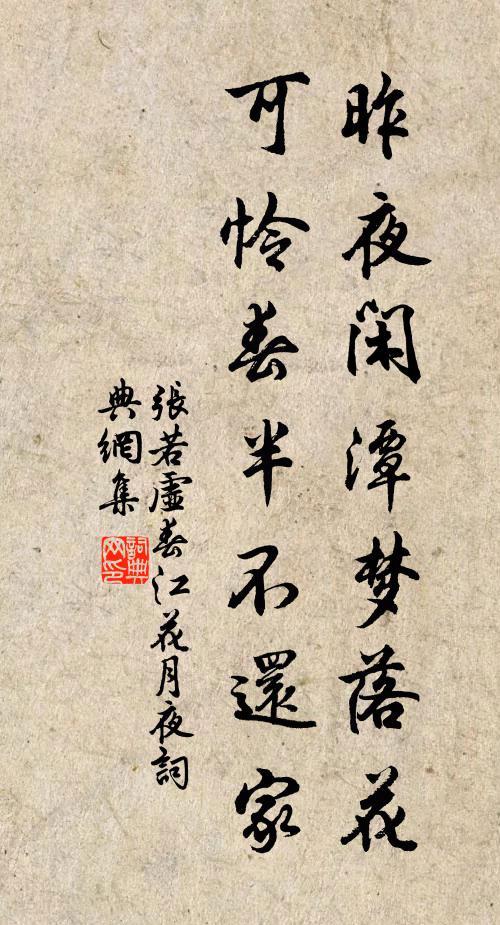 昨夜闲潭梦落花
可怜春半不還家
張若虛春江花月夜詞
典網集
詞典
网印